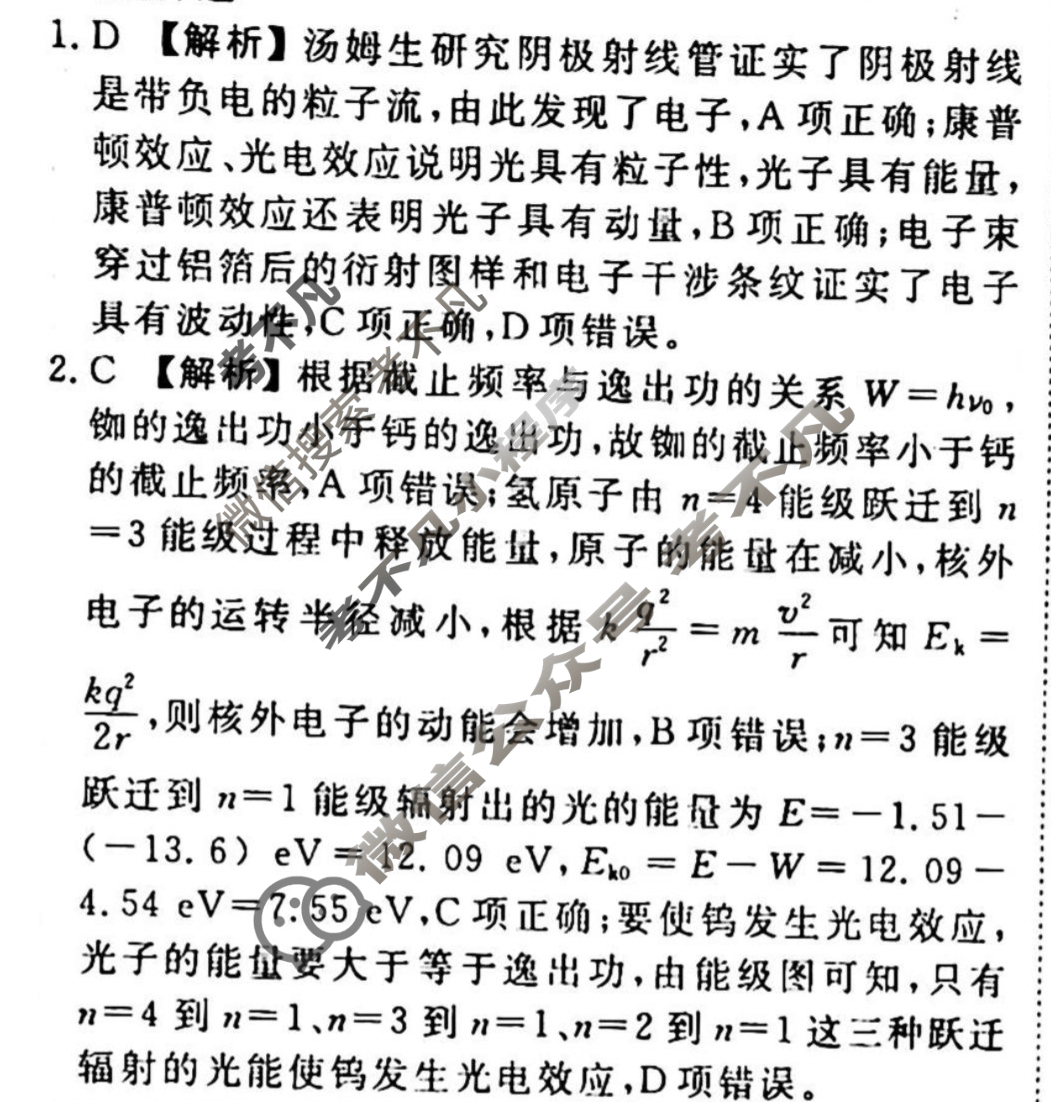 1. D 【解析】汤姆生研究阴极射线管证实了阴极射线
是带负电的粒子流,由此发现了电子,A 项正确;康普
顿效应、光电效应说明光具有粒子性,光子具有能量,
康普顿效应还表明光子具有动量,B 项正确;电子束
穿过铝箔后的衍射图样和电子干涉条纹证实了电子
具有波动性,C 项正确,D 项错误。
2. C 【解析】根据截止频率与逸出功的关系 W=hν₀,
铷的逸出功小于钙的逸出功,故铷的截止频率小于钙
的截止频率,A 项错误;氢原子由 n=4 能级跃迁到 n
=3 能级过程中释放能量,原子的能量在减小,核外
电子的运转半径减小,根据 k q²/r² = m v²/r 可知 Eₖ =
kq²/2r,则核外电子的动能会增加,B 项错误;n=3 能级
跃迁到 n=1 能级辐射出的光的能量为 E=-1.51-
(-13.6) eV=12.09 eV,Eₖ₀=E-W=12.09-
4.54 eV=7.55 eV,C 项正确;要使钨发生光电效应,
光子的能量要大于等于逸出功,由能级图可知,只有
n=4 到 n=1、n=3 到 n=1、n=2 到 n=1 这三种跃迁
辐射的光能使钨发生光电效应,D 项错误。
考不凡
微信搜索 考不凡
考不凡小程序
微信公众号 考不凡